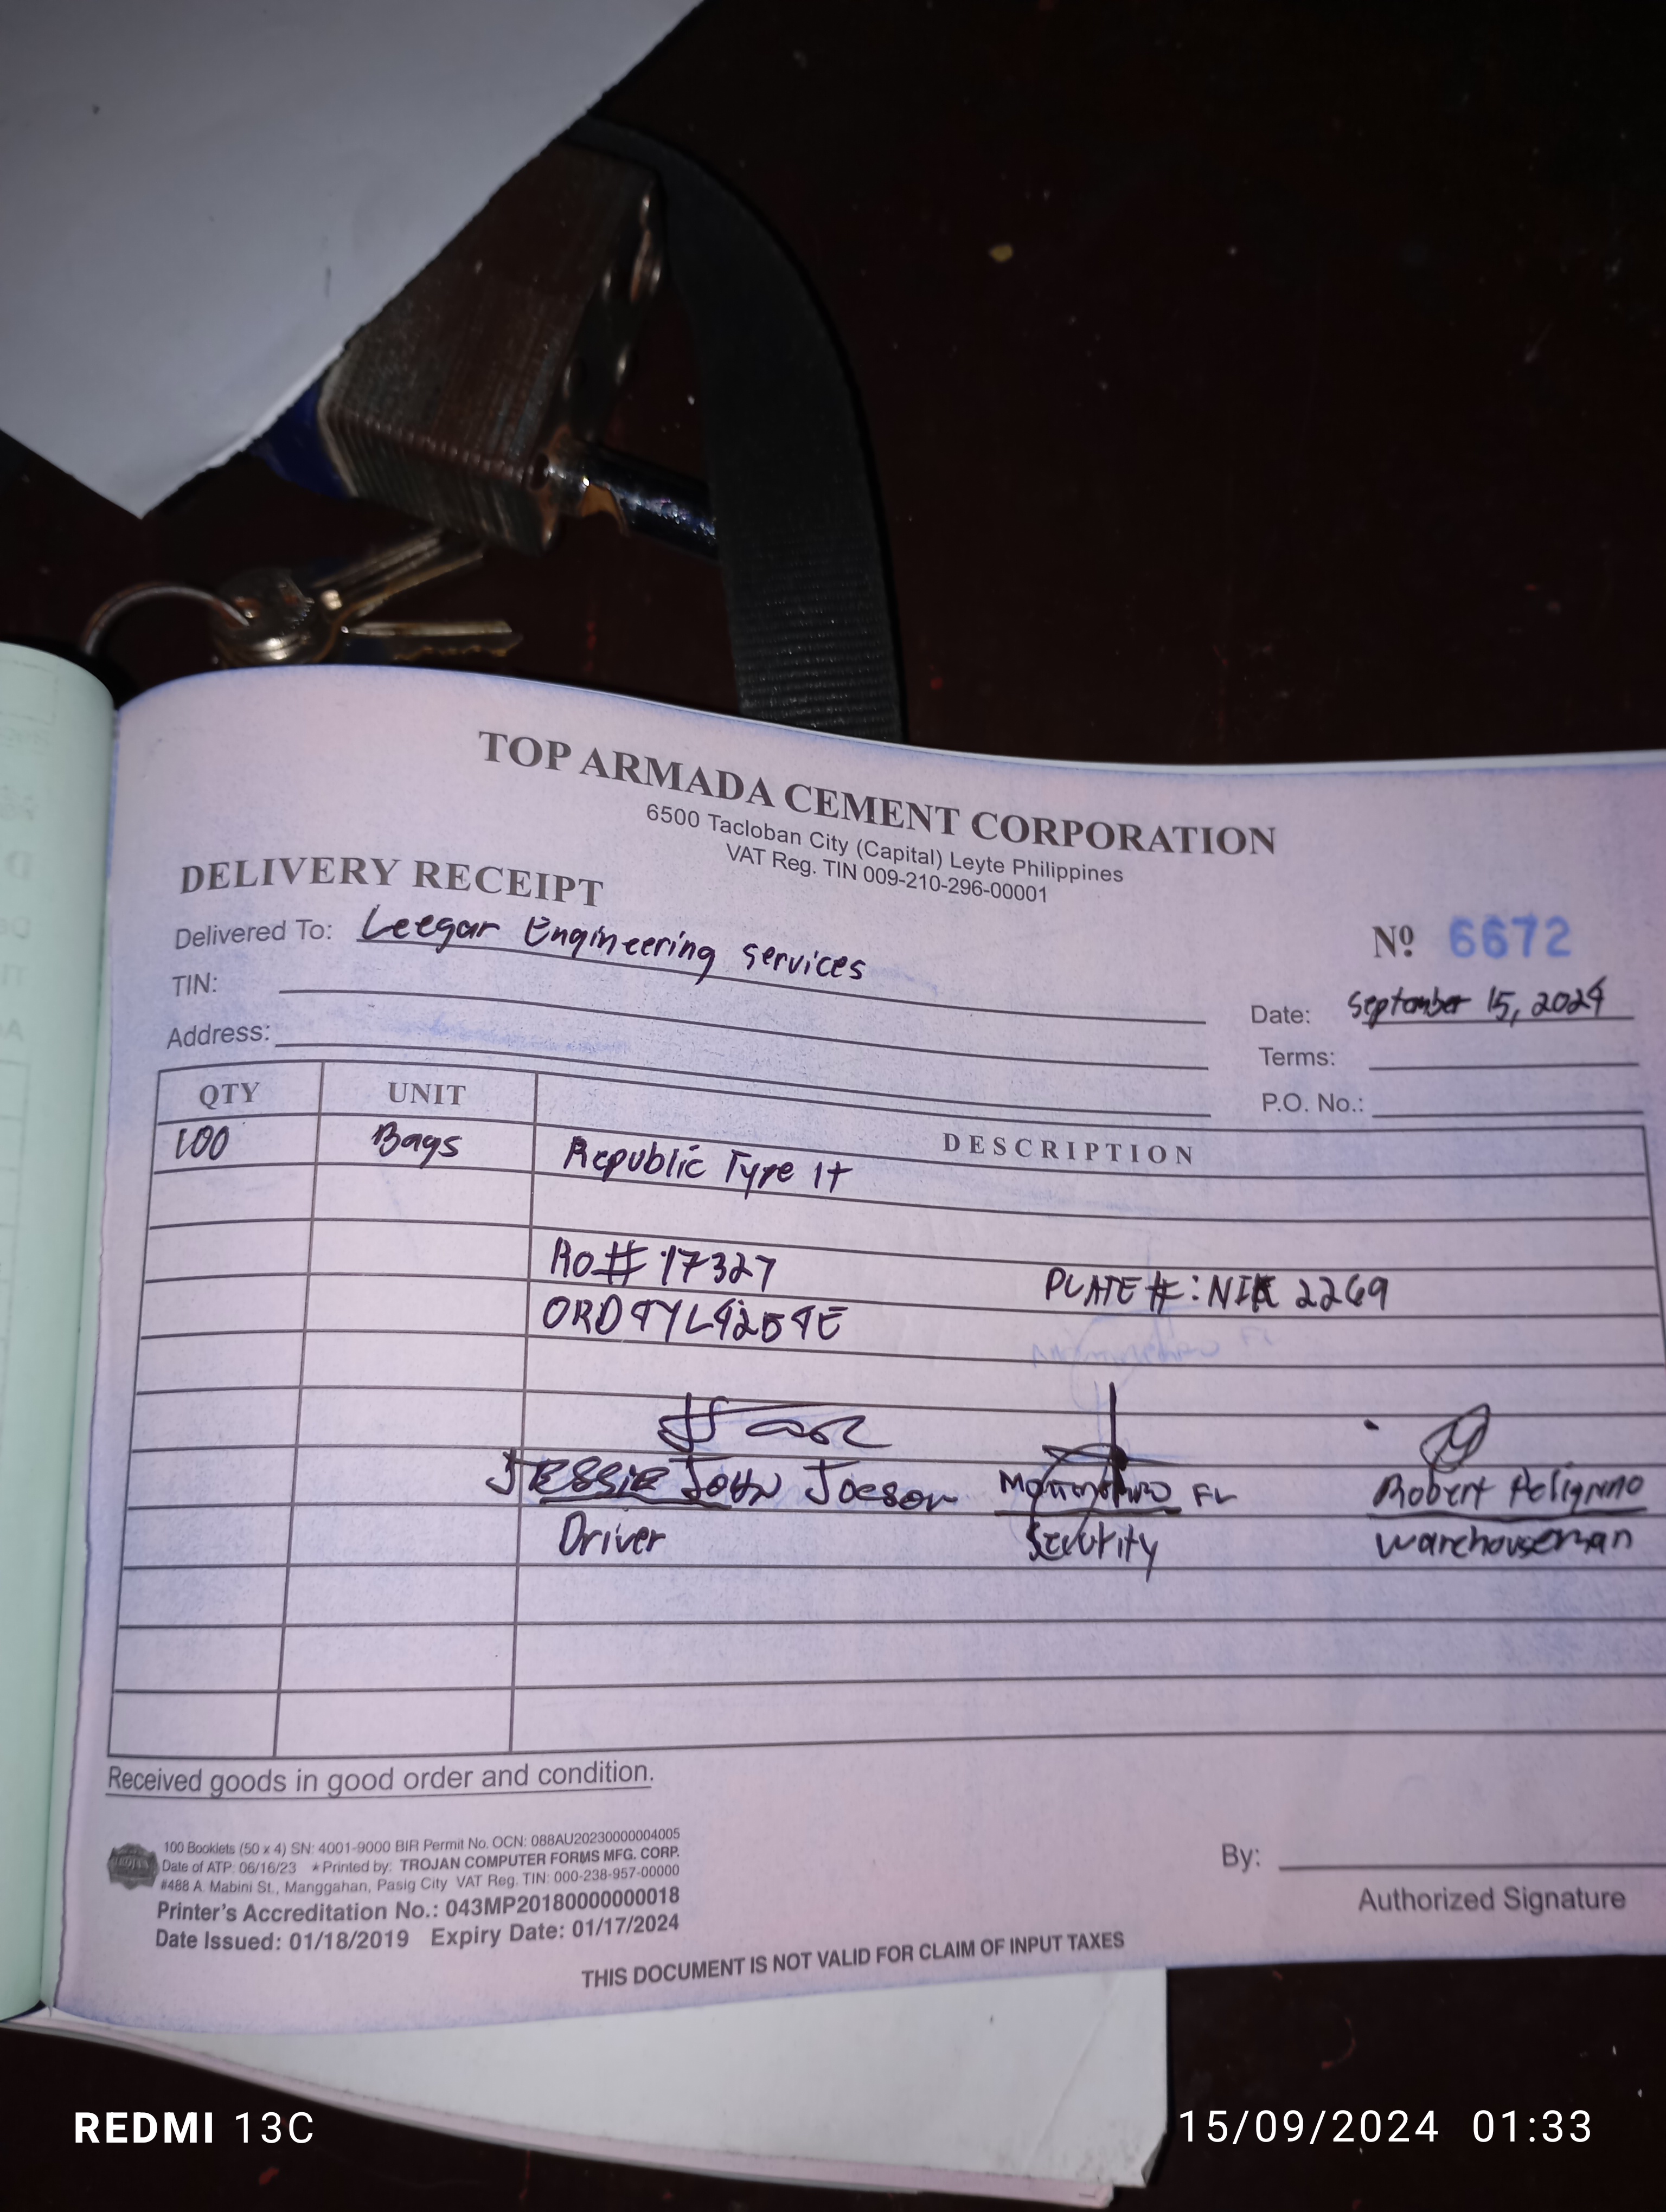 TOP ARMADA CEMENT CORPORATION
6500 Tacloban City (Capital) Leyte Philippines
VAT Reg. TIN 009-210-296-00001
DELIVERY RECEIPT
Delivered To: Leegar Engineering Services
Nº 6672
TIN:
Date: September 15, 2024
Address:
Terms:
P.O. No.:
QTY UNIT DESCRIPTION
100 Bags Republic Type 1t
Ro# 17327
PLATE #: NIK 2269
JESSIE JOHN Joeson FL Robert Peligrino
Driver Security warehouseman
Received goods in good order and condition.
100 Booklets (50 x 4) SN: 4001-9000 BIR Permit No. OCN: 088AU20230000004005
Date of ATP: 06/16/23 ★Printed by: TROJAN COMPUTER FORMS MFG. CORP.
#488 A. Mabini St., Manggahan, Pasig City VAT Reg. TIN: 000-238-957-00000
Printer's Accreditation No.: 043MP20180000000018
Date Issued: 01/18/2019 Expiry Date: 01/17/2024
By:
Authorized Signature
THIS DOCUMENT IS NOT VALID FOR CLAIM OF INPUT TAXES
REDMI 13C
15/09/2024 01:33